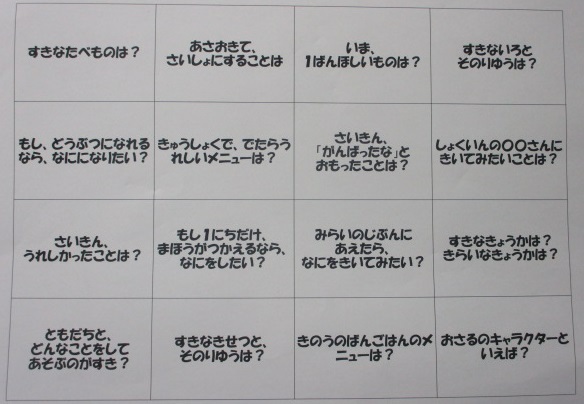 すきなたべものは？
あさおきて、
さいしょにすることは
いま、
1ばんほしいものは？
すきないろと
そのりゆうは？
もし、どうぶつになれる
なら、なにになりたい？
きゅうしょくで、でたらう
れしいメニューは？
さいきん、
「がんばったな」と
おもったことは？
しょくいんの〇〇さんに
きいてみたいことは？
さいきん、
うれしかったことは？
もし1にちだけ、
まほうがつかえるなら、
なにをしたい？
みらいのじぶんに
あえたら、
なにをきいてみたい？
すきなきょうかは？
きらいなきょうかは？
ともだちと、
どんなことをして
あそぶのがすき？
すきなきせつと、
そのりゆうは？
きのうのばんごはんのメ
ニューは？
おさるのキャラクターと
いえば？